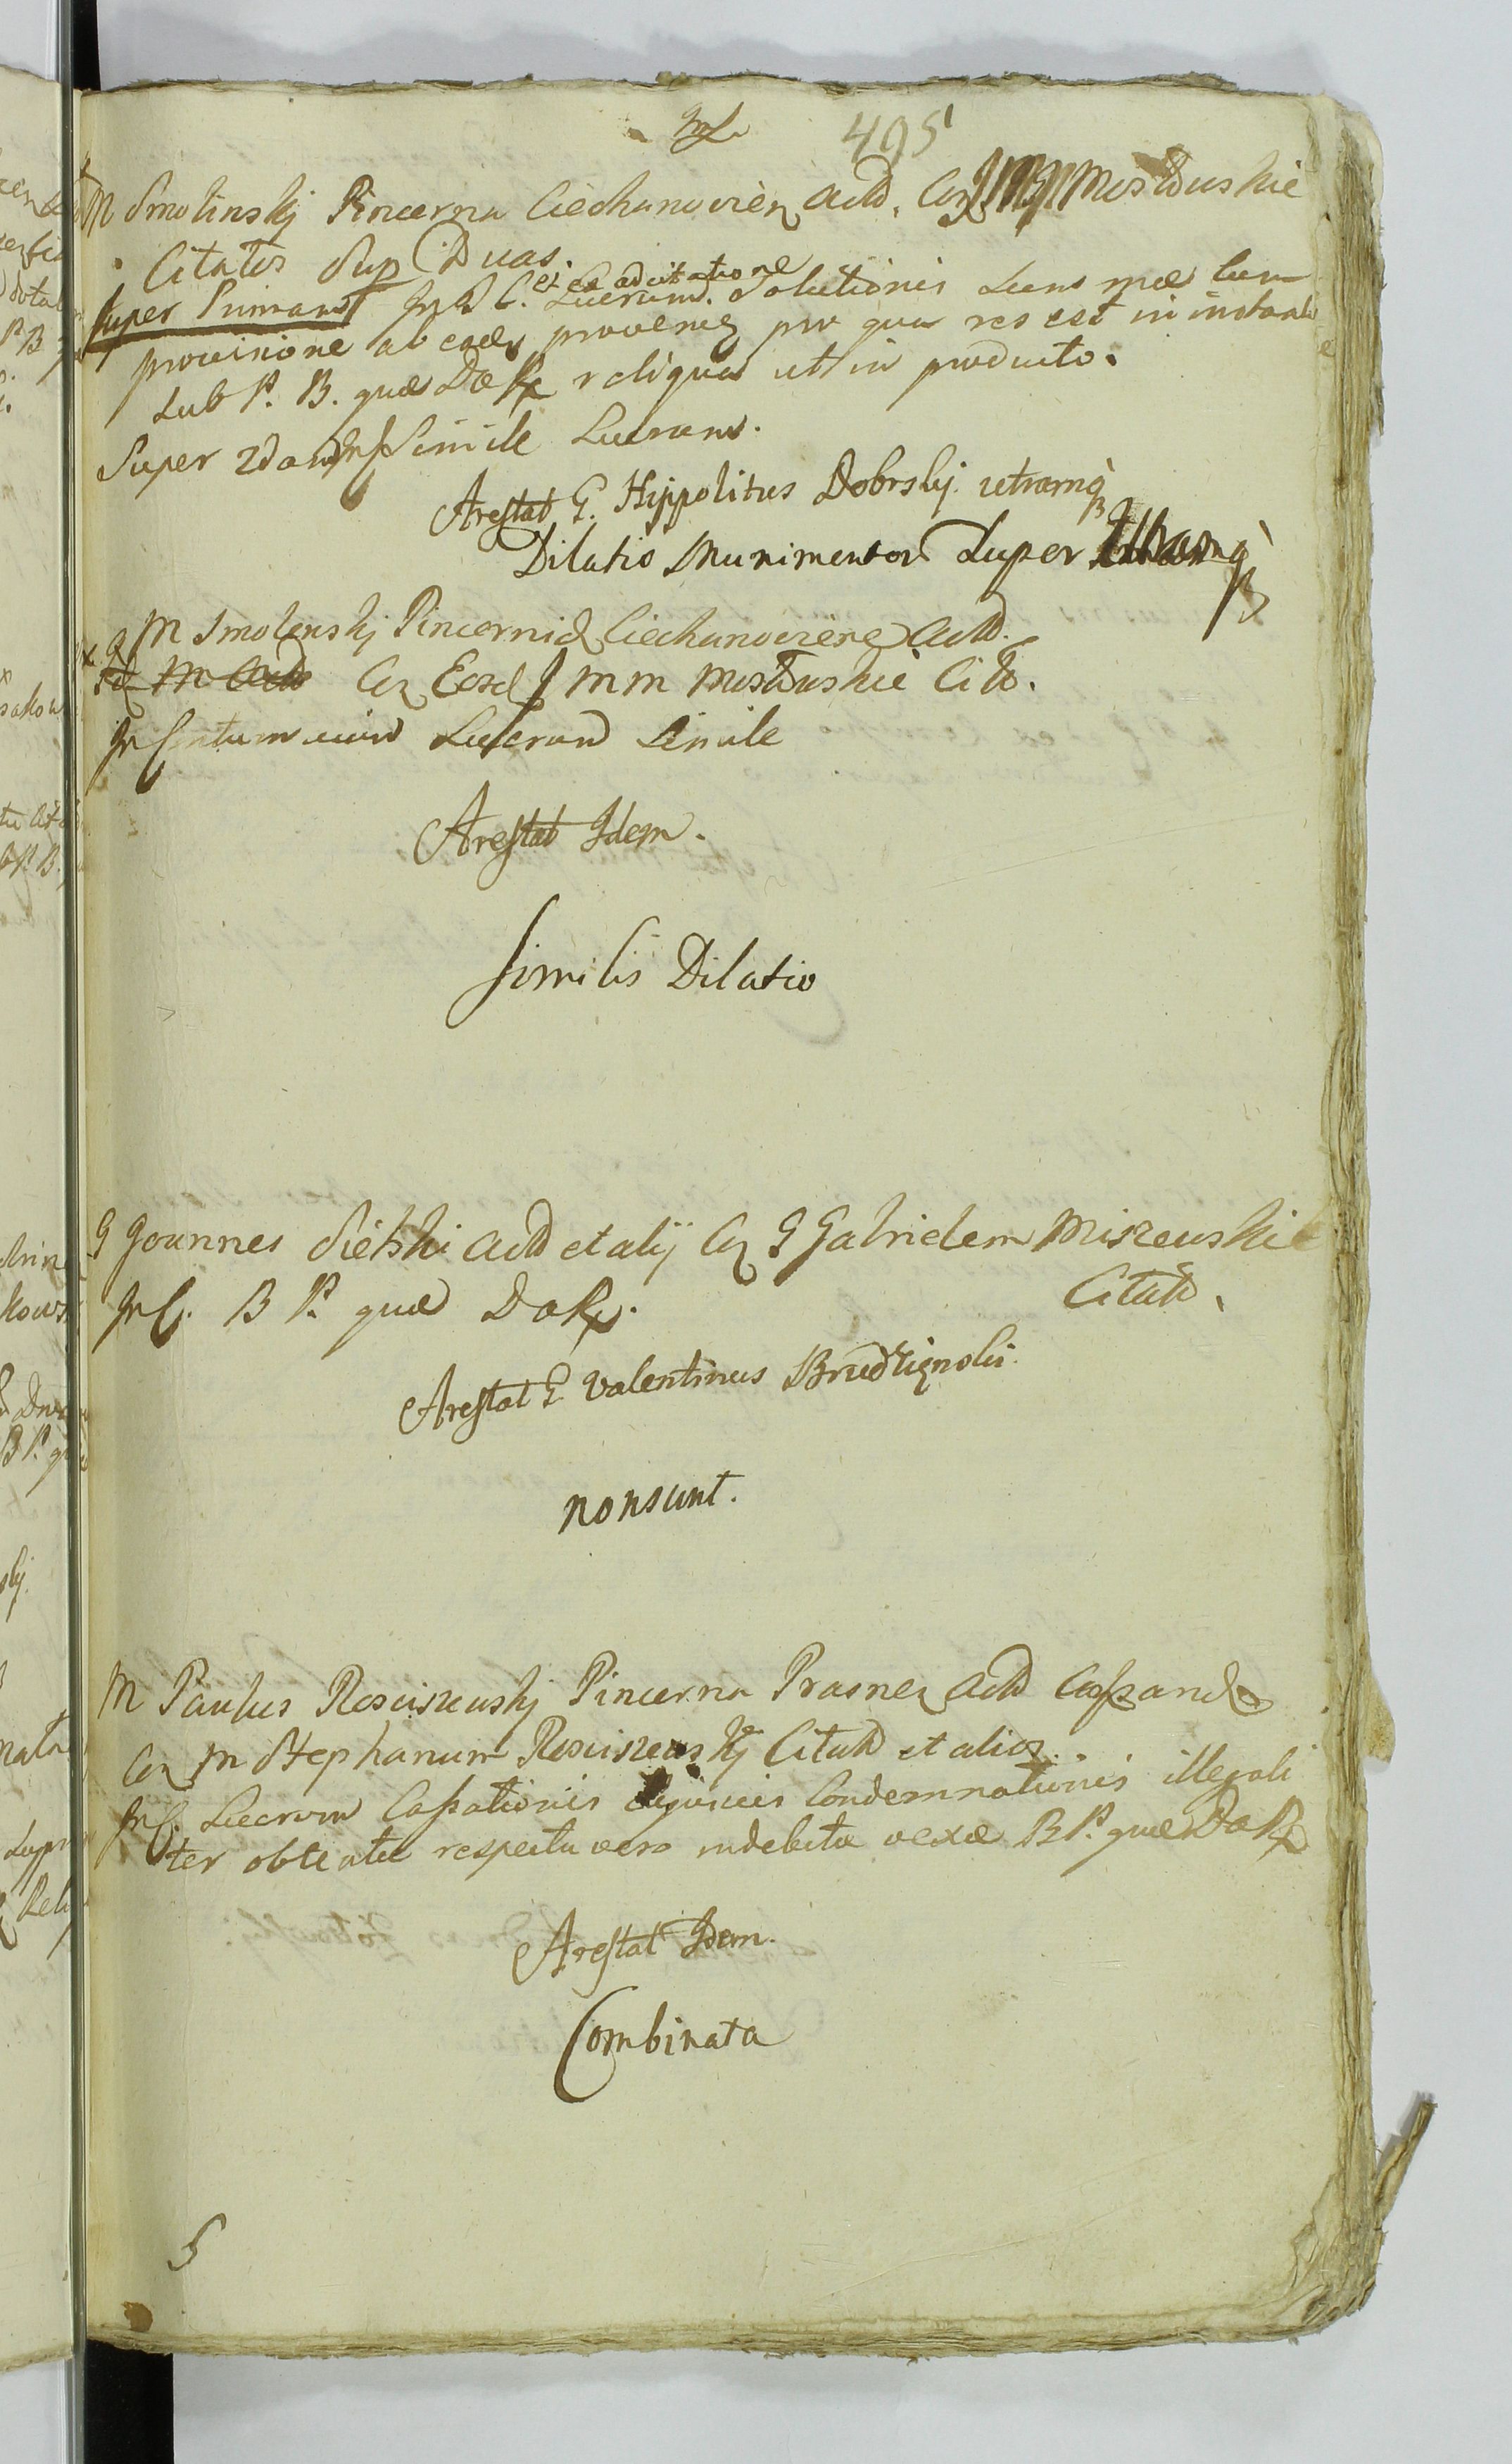 495
M Smolinskj Pincerna Ciechanovien Actd. Con Mostowskie
Citatos Sup Duas.
et ex adcitatione
Super Primam In C. Lucrand. Solutionis Sums mae cum
provisione ab eadem provenien pro qua res est in instanti
sub P. B. quae Do Rx reliqua ut in producto.
Super 2dam In C Simile Lucrand.
Arestat G. Hyppolitus Dobrskj utramq
Dilatio Munimentor Super utramq
M Smolenskj Pincernid Ciechanoviene Actd.
Con Eosd MM Mostowskie Citt.
In C Lucrand Simile
Arestat Idem.
Similis Dilatio
G Joannes Sietski Actd et alij Con G Gabrielem Miszewski
Citatd.
In C. B P. quae Do Rx.
Arestat G Valentinus Brudzignski.
non sunt.
M Paulus Rosciszewskj Pincerna Prasnen Actd Cassand
Con M Stephanum Rosciszewskj Citatd et alios.
In C. Lucrum Cassationis Condemnationis illegali
ter obtentae respectu vero indebitae vexae B P. quae Do Rx
Arestat Idem.
Combinata